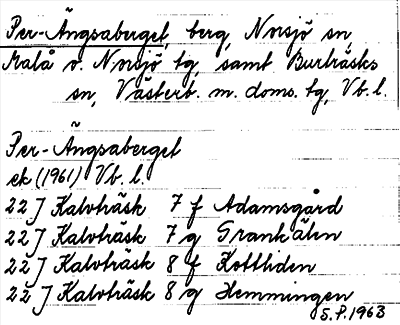 Per-Ängsaberget, berg, Norsjö sn
Malå o. Norsjö tg, samt Burträsks
sn, Västerb. m. doms. tg, Vb. l.
Per-Ängsaberget
ek (1961) Vb. l.
22 J Kalvträsk 7 f Adamsgård
22 J Kalvträsk 7 g Grankälen
22 J Kalvträsk 8 f Kottliden
22 J Kalvträsk 8 g Hemmingen
S.P. 1963